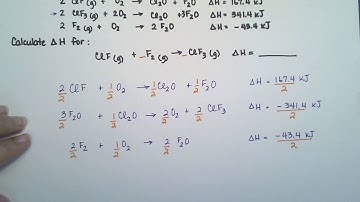 2 ClF (g) + O₂ → Cl₂O + F₂O ΔH = 167.4 kJ
2 ClF₃ (g) + 2O₂ → Cl₂O + 3F₂O ΔH = 341.4 kJ
2 F₂ (g) + O₂ → 2 F₂O ΔH = -43.4 kJ
Calculate ΔH for:
ClF (g) + _F₂ (g) → _ClF₃ (g) ΔH = ____
2/2 ClF + 1/2 O₂ → 1/2 Cl₂O + 1/2 F₂O ΔH = 167.4 kJ/2
3/2 F₂O + 1/2 Cl₂O → 2/2 O₂ + 2/2 ClF₃ ΔH = -341.4 kJ/2
2/2 F₂ + 1/2 O₂ → 2/2 F₂O ΔH = -43.4 kJ/2